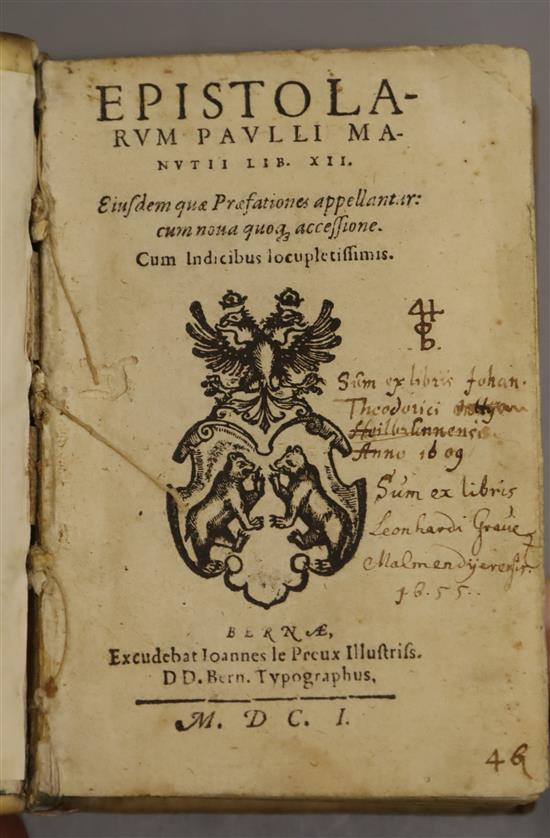 EPISTOLA-
RVM PAVLLI MA-
NVTII LIB. XII.
Eiusdem quæ Præfationes appellantur:
cum noua quoq; accessione.
Cum Indicibus locupletissimis.
Sum ex libris Johan.
Theodorici
Heilbrunnensis
Anno 1609
Sum ex libris
Leonhardi Graue
Malmendyerensis
1655.
BERNÆ,
Excudebat Ioannes le Preux Illustriss.
DD. Bern. Typographus,
M. D C. I.
46